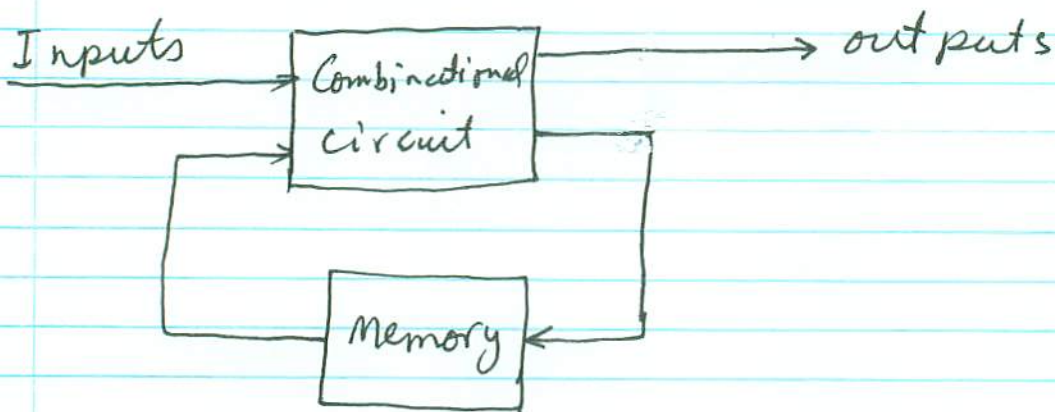 Inputs
Combinational
circuit
outputs
Memory